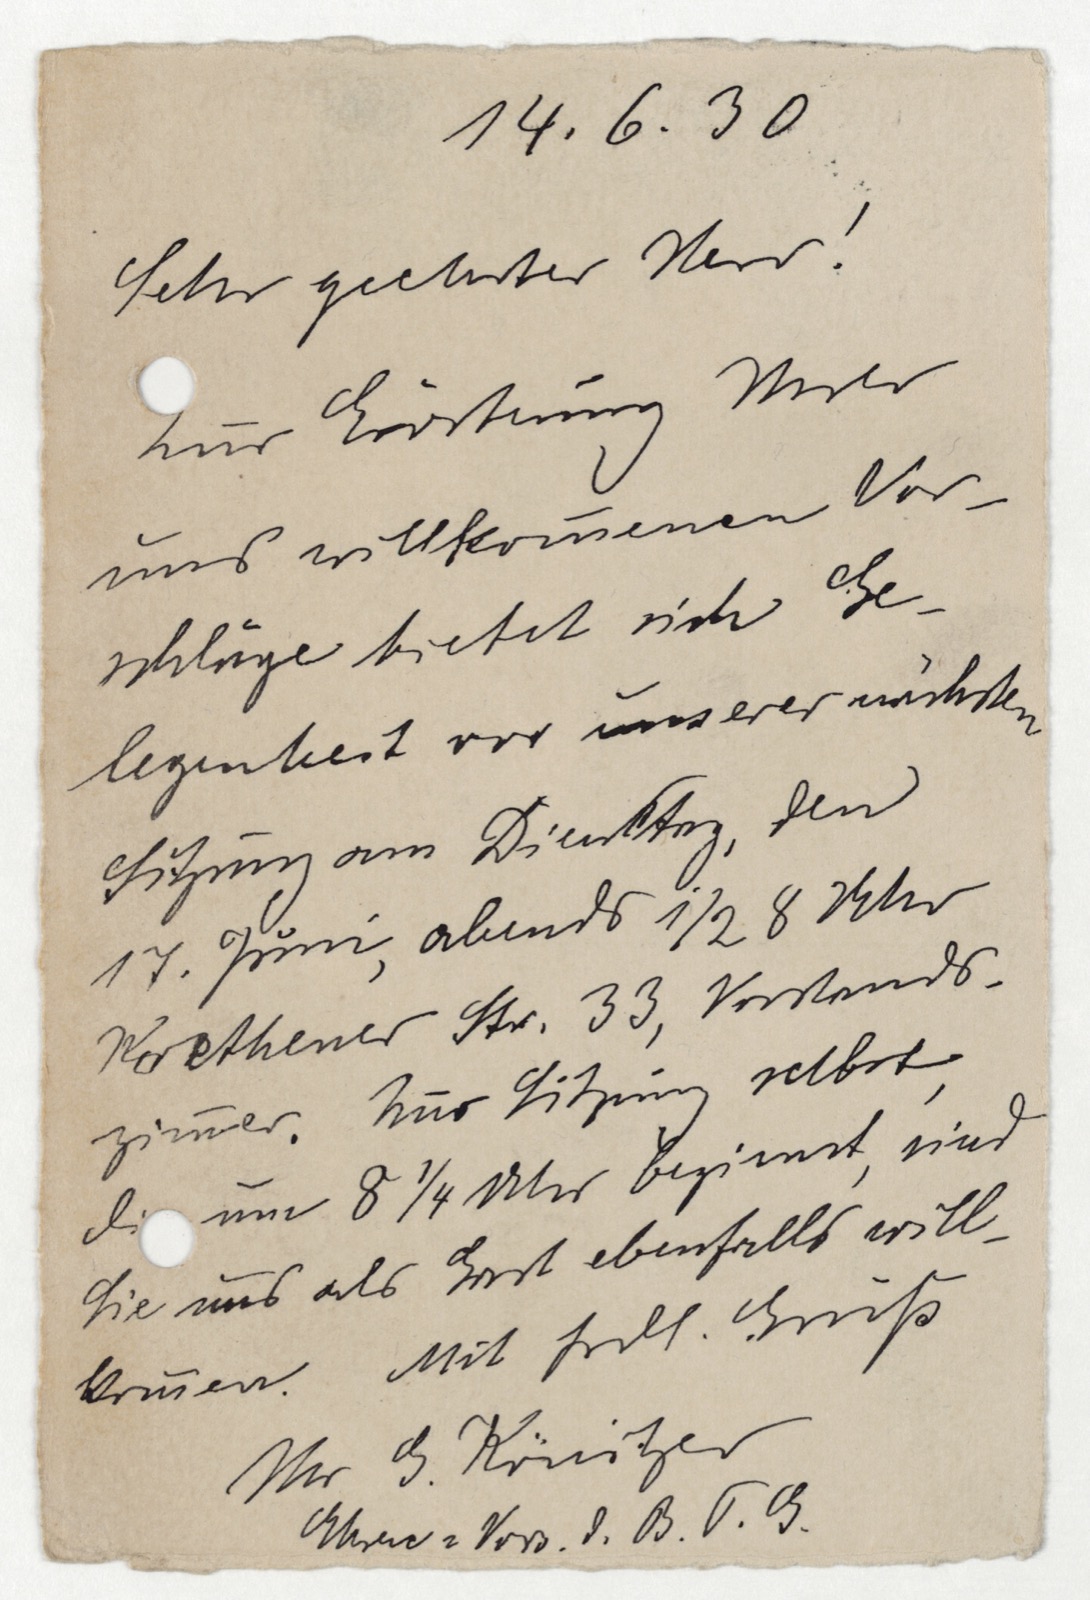 14. 6. 30
Sehr geehrter Herr!
Zur Erörterung Ihrer
uns willkom̄enen Vor-
schläge bietet sich Ge-
legenheit vor unserer nächsten
Sitzung am Dienstag, den
17. Juni, abends 1/2 8 Uhr
Koethener Str. 33, Vorstands-
zim̄er. Zur Sitzung selbst,
die um 8 1/4 Uhr beginnt, sind
Sie uns als Gast ebenfalls will-
kom̄en. Mit frdl. Gruß
Ihr G. Könitzer
Ehren=Vors. d. B. T. G.